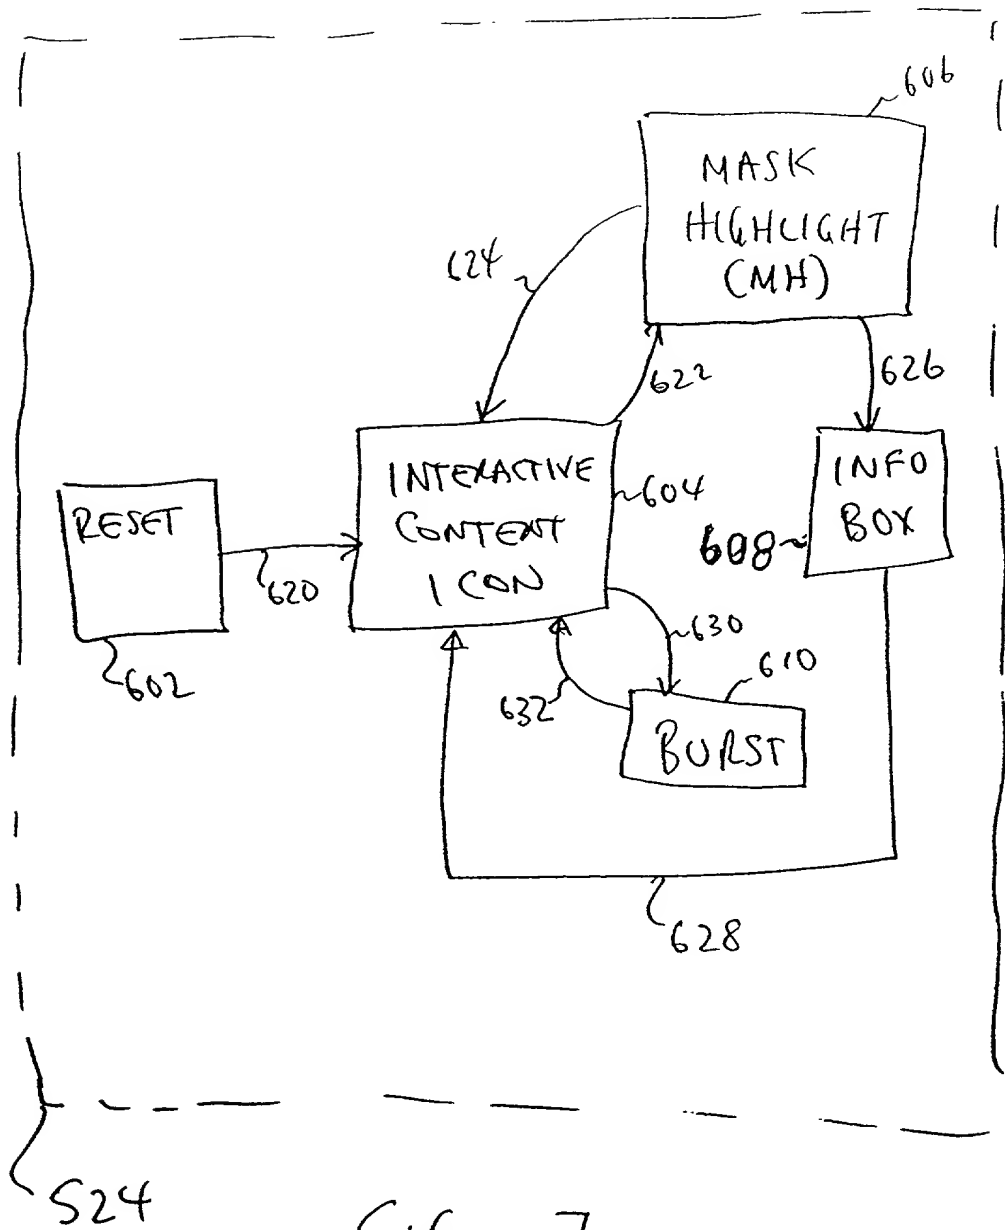 606
MASK
HIGHLIGHT
(MH)
624
622
626
RESET
INTERACTIVE
CONTENT
ICON
604
INFO
BOX
608
620
602
630
610
632
BURST
628
524